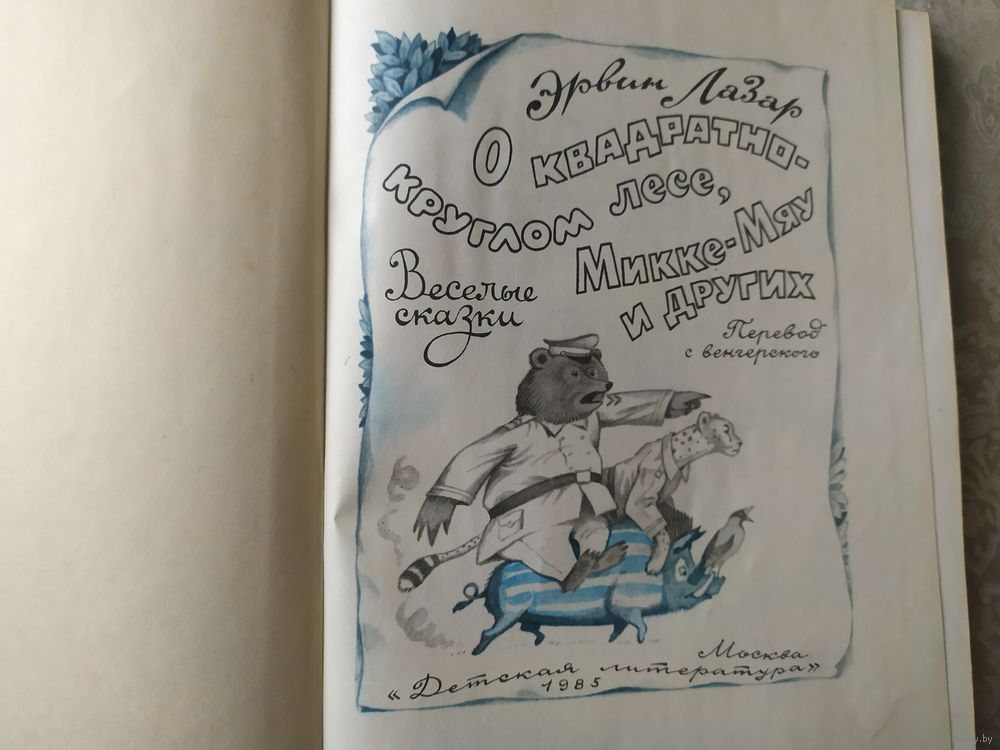 Эрвин Лазар
О квадратно-
круглом лесе,
Микке-Мяу
и других
Весёлые
сказки
Перевод
с венгерского
Москва
«Детская литература»
1985